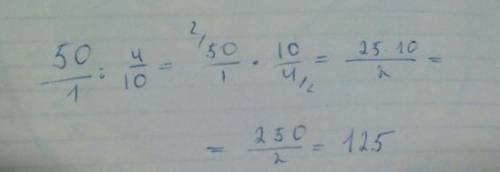 50/1 : 4/10 = 2/50/1 · 10/4/2 = 25·10/2 =
= 250/2 = 125